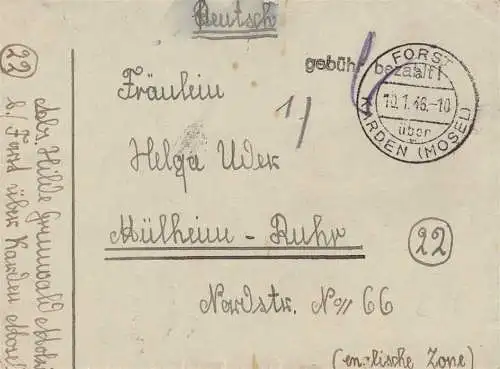 Deutsch
gebühr bezahlt!
FORST
10.1.46.-10
über
KARDEN (MOSEL)
Fräulein
1/
Helga Uder
Mülheim - Ruhr
22
Nordstr. No 66
(englische Zone)
22
Abs. Hilde Grunwald
b./ Forst über Karden Mosel